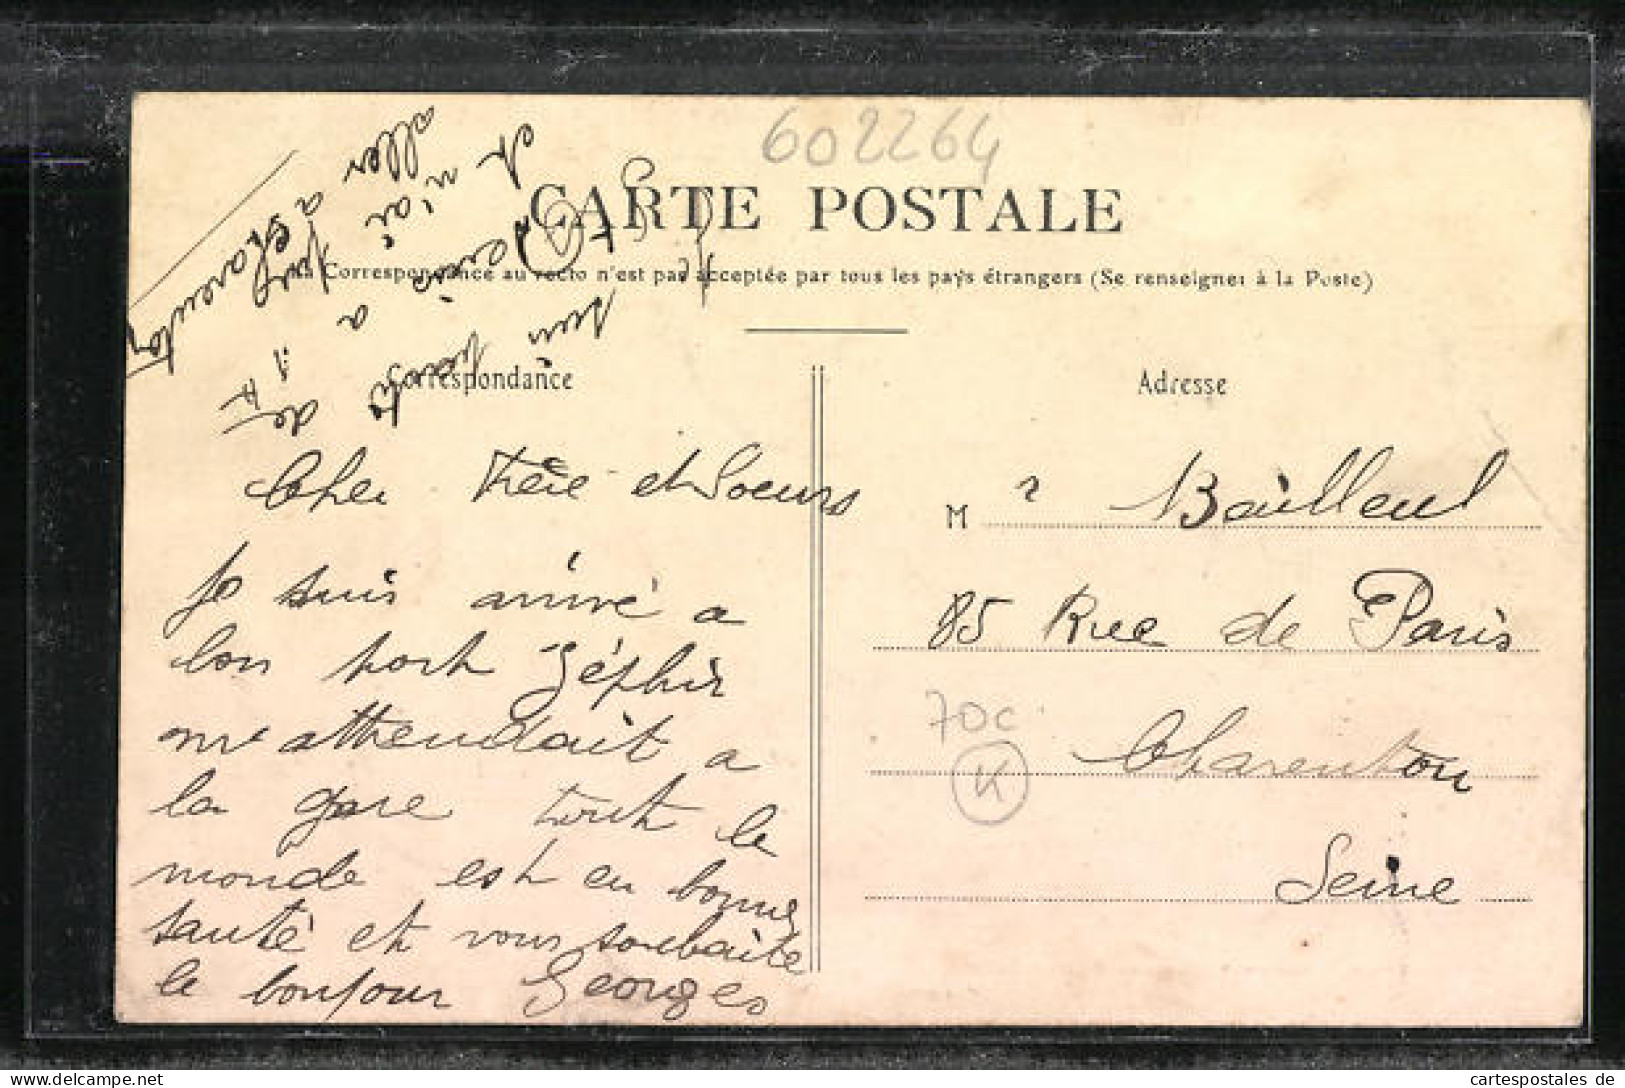 602264
CARTE POSTALE
La Correspondance au recto n'est pas acceptée par tous les pays étrangers (Se renseigner à la Poste)
Correspondance
Adresse
Cher Frère et Soeurs
Je suis arrivé a
bon port Zéphir
m'attendait a
la gare tout le
monde est en bonne
santé et vous souhaite
le bonjour Georges
Je suis
parti de
Paris a
et n'ai pu
aller a Charenton
M r Bailleul
85 Rue de Paris
70c
K
Charenton
Seine
cartespostales de